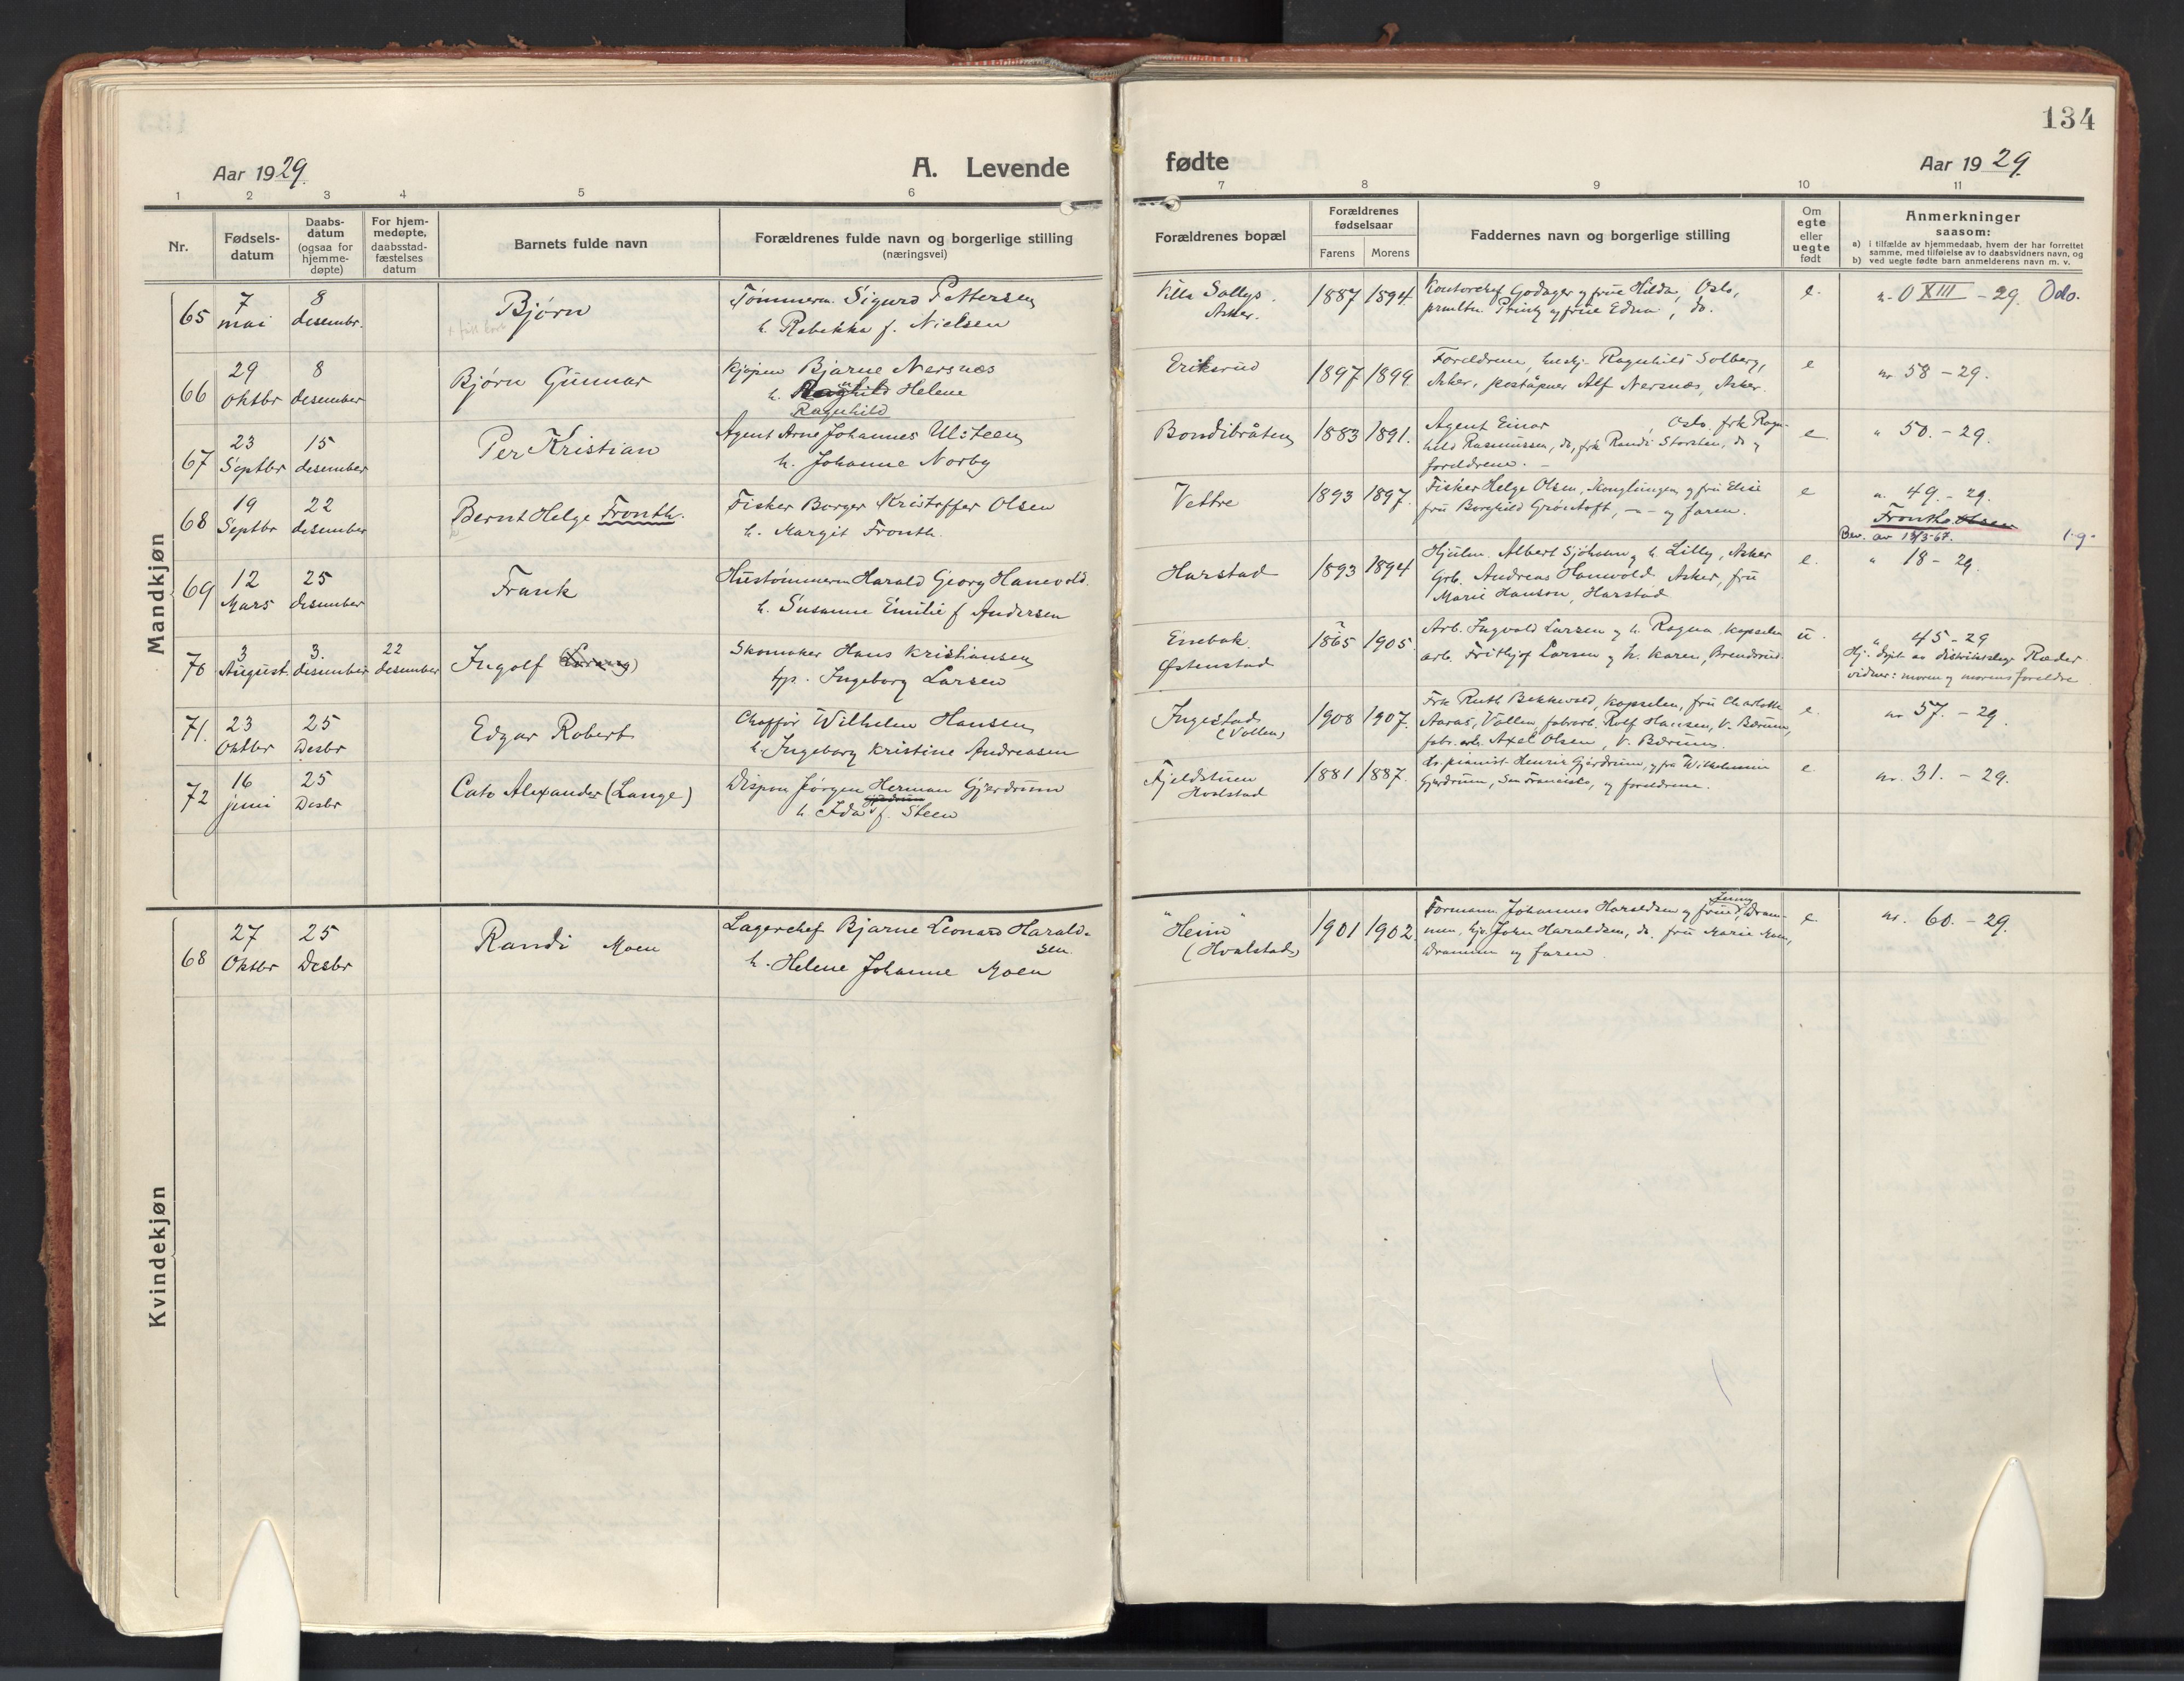 134
Aar 1929.
A. Levende
fødte
Aar 1929.
1 2 3 4 5 6 7 8 9 10 11
Nr.
Fødsels-
datum
Daabs-
datum
(ogsaa for
hjemme-
døpte)
For hjem-
medøpte,
daabsstad-
fæstelses
datum
Barnets fulde navn
Forældrenes fulde navn og borgerlige stilling
(næringsvei)
Forældrenes bopæl
Forældrenes
fødselsaar
Farens Morens
Faddernes navn og borgerlige stilling
Om
egte
eller
uegte
født
Anmerkninger
saasom:
a) i tilfælde av hjemmedaab, hvem der har forrettet
samme, med tilføielse av to daabsvidners navn, og
b) ved uegte fødte barn anmelderens navn m. v.
Mandkjøn
65 7 mai 8 desembr. Bjørn
Tømmerm. Sigurd Pettersen
h. Rebekka f. Nielsen
Villa Sollys. Asker. 1887 1894
Kontorchef Godager og frue Hilda, Oslo,
og frue Edna, do.
e. n. 0 XIII - 29. Oslo.
66 29 Oktbr 8 desember Bjørn Gunnar
Kjøpm Bjarne Nersnæs
h. Ragnhild Helene
Ragnhild
Eriksrud 1897 1899
Foreldrene, Ragnhild Solberg,
Asker, poståpner Alf Nersnæs, Asker.
e nr 58 - 29.
67 23 Septbr 15 desember Per Kristian
Agent Arne Johannes Ulsteen
h. Johanne Norby
Bondibråten 1883 1891.
Agent Einar , Oslo. frk Ragn-
hild Rasmussen, do, frk Randi Storsten, do og
foreldrene. -
e. " 50. - 29.
68 19 Septbr 22 desember Bernt Helge Fronth.
Fisker Borger Kristoffer Olsen
h. Margit Fronth.
Vettre 1893 1897.
Fisker Helge Olsen, Konglungen og fru Elise
fru Borghild Grøntoft, - - og faren.
e n. 49. - 29.
Fronth. Olsen
Bev. av 13/3-67. 1.9.
69 12 Mars 25 desember Frank
Hustømmerm Harald Georg Hanevold.
h. Susanne Emilie f Andersen
Harstad 1893 1894
Hjulm. Albert Sjøholm og h. Lilly, Asker
Grb. Andreas Hanevold Asker, fru
Marie Hanson, Harstad
e. " 18 - 29.
70 3 August 3. desember 22 desember Ingolf
Skomaker Hans Kristiansen
tp. Ingeborg Larsen
Enebak Østenstad 1865 1905.
Arb. Ingvald Larsen og h. Ragna, Kopselen
arb. Frithjof Larsen og h. Karen, Brendsrud.
u. " 45 - 29
Hj. døpt av distriktslæge Ræder.
vidner: moren og morens foreldre
71. 23 Oktbr 25 Desbr Edgar Robert
Chaffør Wilhelm Hansen
h. Ingeborg Kristine Andreasen
Ingestad (Vollen) 1908 1907.
Frk Ruth Bekkevold, Kopselen, fru Charlotte
Aaraas, Vollen, fabrarb. Rolf Hansen, V. Bærum,
fabr. arb. Axel Olsen, V. Bærum.
e. nr 57. - 29.
72 16 juni 25 Desbr Cato Alexander (Lange)
Dispon. Jørgen Herman Gjerdrum
h. Ida f. Steen
Fjeldstuen Hvalstad 1881 1887.
pianist Henrik Gjerdrum, og fru Wilhelmine
Gjerdrum, San Francisco, og foreldrene.
e nr. 31. - 29.
Kvindekjøn
68 27 Oktbr 25 Desbr Randi Moen
Lagerchef Bjarne Leonard Harald-
sen
h. Helene Johanne Moen
"Heim" (Hvalstad) 1901 1902
Formann Johannes Haraldsen og frue Jenny, Dram-
men, John Haraldsen, do. fru Marie Moen,
Drammen og faren.
e. nr. 60. - 29.